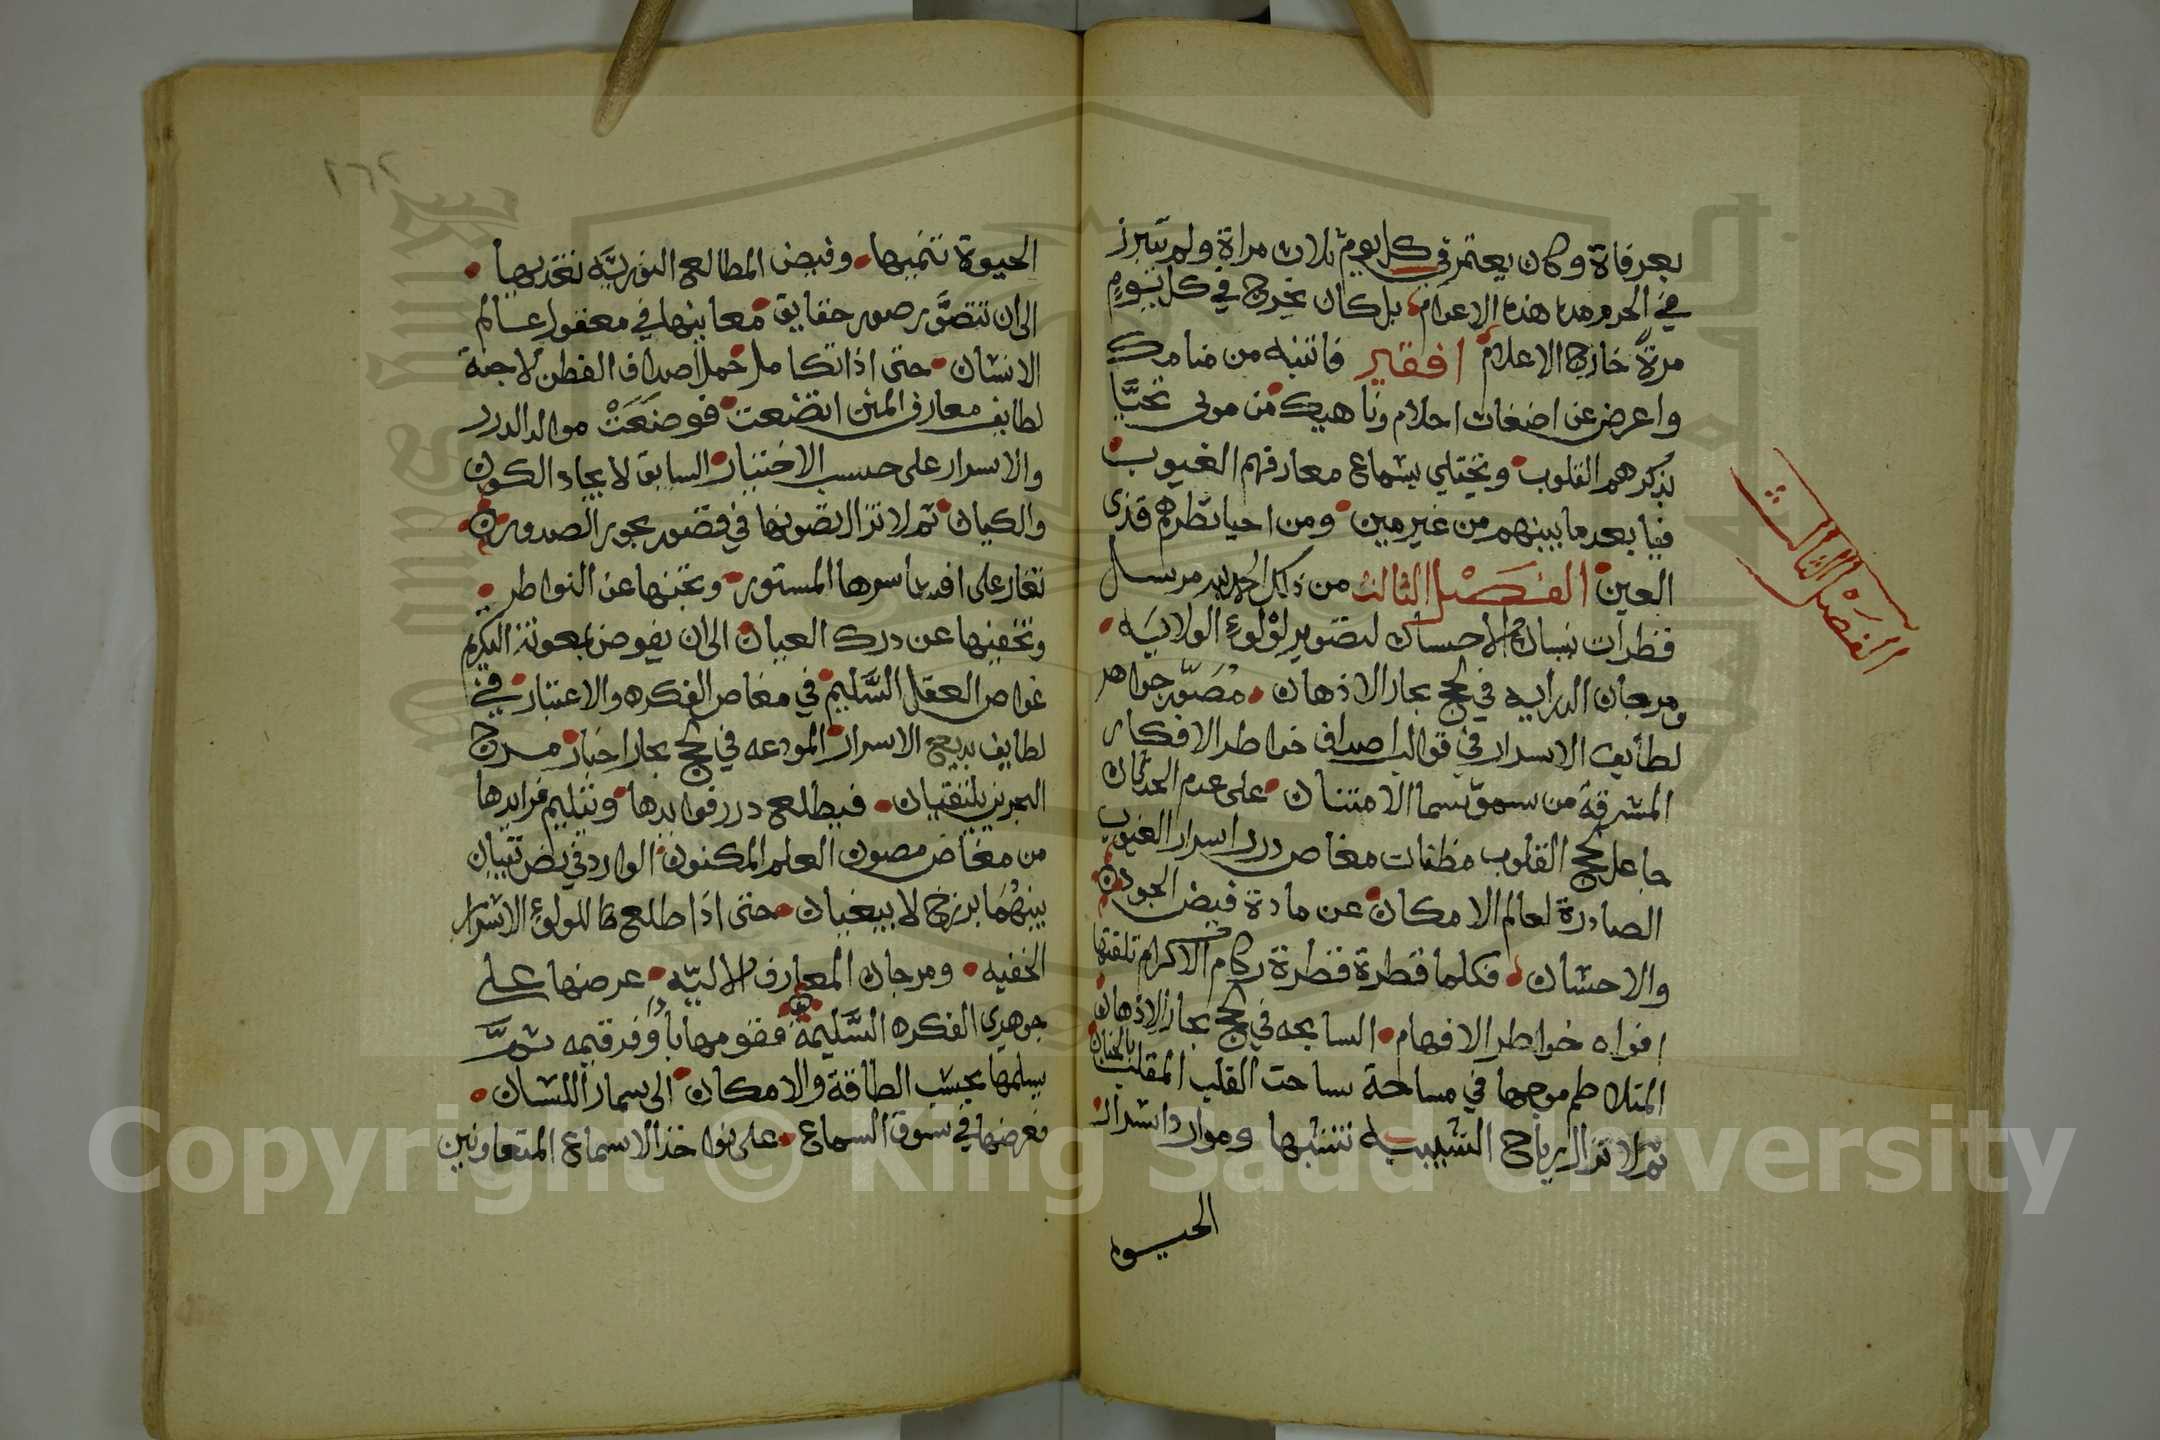 بعرفاة وكان يعتمر في كل يوم ثلاث مراة ولم يتبرز
في الحرم مدة هذه الاعوام بل كان يخرج في كل يوم
مرة خارج الاعلام افقير فانتبه من منامك
واعرض عن اضغاث احلام وناهيك من مولى تحيا
بذكرهم القلوب وتجتلي بسماع معارفهم الغيوب
فيا بعد ما بينهم من غير مين ومن احيا بطرهم قذى
العين الفصل الثالث من ذلك الحمد لله مرسل
قطرات نيسان الاحسان لتصوير لؤلوء الولايه
ومرجان الدرايه في لجج بحار الاذهان مصور جواهر
لطايف الاسرار في قوالب اصداف خواطر الافكار
المشرقة من سمو سما الامتنان على عدم الحدثان
جاعل لجج القلوب مظنات مغاص درر اسرار الغيوب
الصادرة لعالم الامكان عن مادة فيض الجود
والاحسان فكلما قطرة قطرة ركام الاكرام تلقتها
افواه خواطر الافهام السابحه في لجج بحار الاذهان
المتلاطم موجها في مساحة ساحت القلب المقلب بالحنان
ثم لا تزال رياح التشبيب تنشبها وموارد اسرار
الحيوه
الفصل الثالث
الحيوة تنميها وفيض المطالع النوريه تغذيها
الى ان تتصور صور حقايق معانيها في معقول عالم
الانسان حتى اذا تكامل حمل اصداف الفطن لاجنة
لطايف معارف المنن انقضعت فوضعت موالد الدرر
والاسرار على حسب الاختيار السابق لايجاد الكون
والكيان ثم لا تزال تصونها في قصور بحور الصدور
تغار على افدا سرها المستور وتجنها عن النواظر
وتخفيها عن درك العيان الى ان يفوض بمعونة الكريم
غواص العقل السليم في مغاص الفكره والاعتبار في
لطايف بديع الاسرار المودعه في لجج بحار اخبار مرج
البحرين يلتقيان فيطلع درر فوايدها ويتيم فرايدها
من مغاص مصون العلم المكنون الوارد في نص تبيان
بينهما برزخ لا يبغيان حتى اذا طلع تاللولوء الاسرار
الخفيه ومرجان المعارف الاليه عرضها على
جوهري الفكره السليمة فقومها باوفر قيمه ثم
يسلمها بحسب الطاقة والامكان الى سمار اللسان
فعرضها في سوق السماع على نوافذ الاسماع المتعاونين